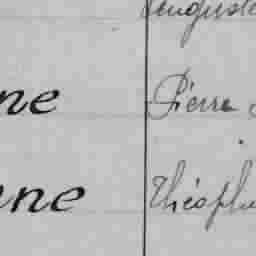 Auguste
ne Pierre
ne Théophi